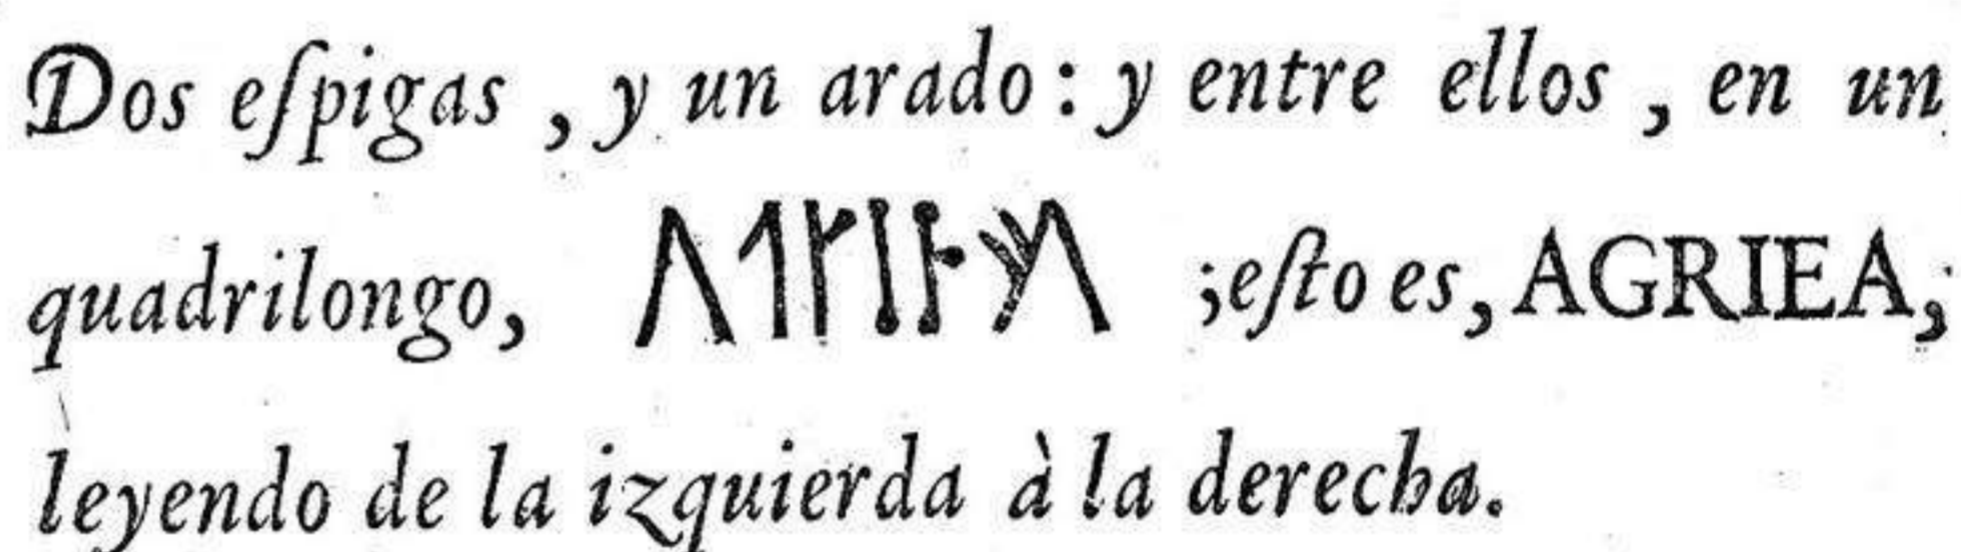 Dos eſpigas, y un arado: y entre ellos, en un
quadrilongo, ;eſto es, AGRIEA,
leyendo de la izquierda à la derecha.